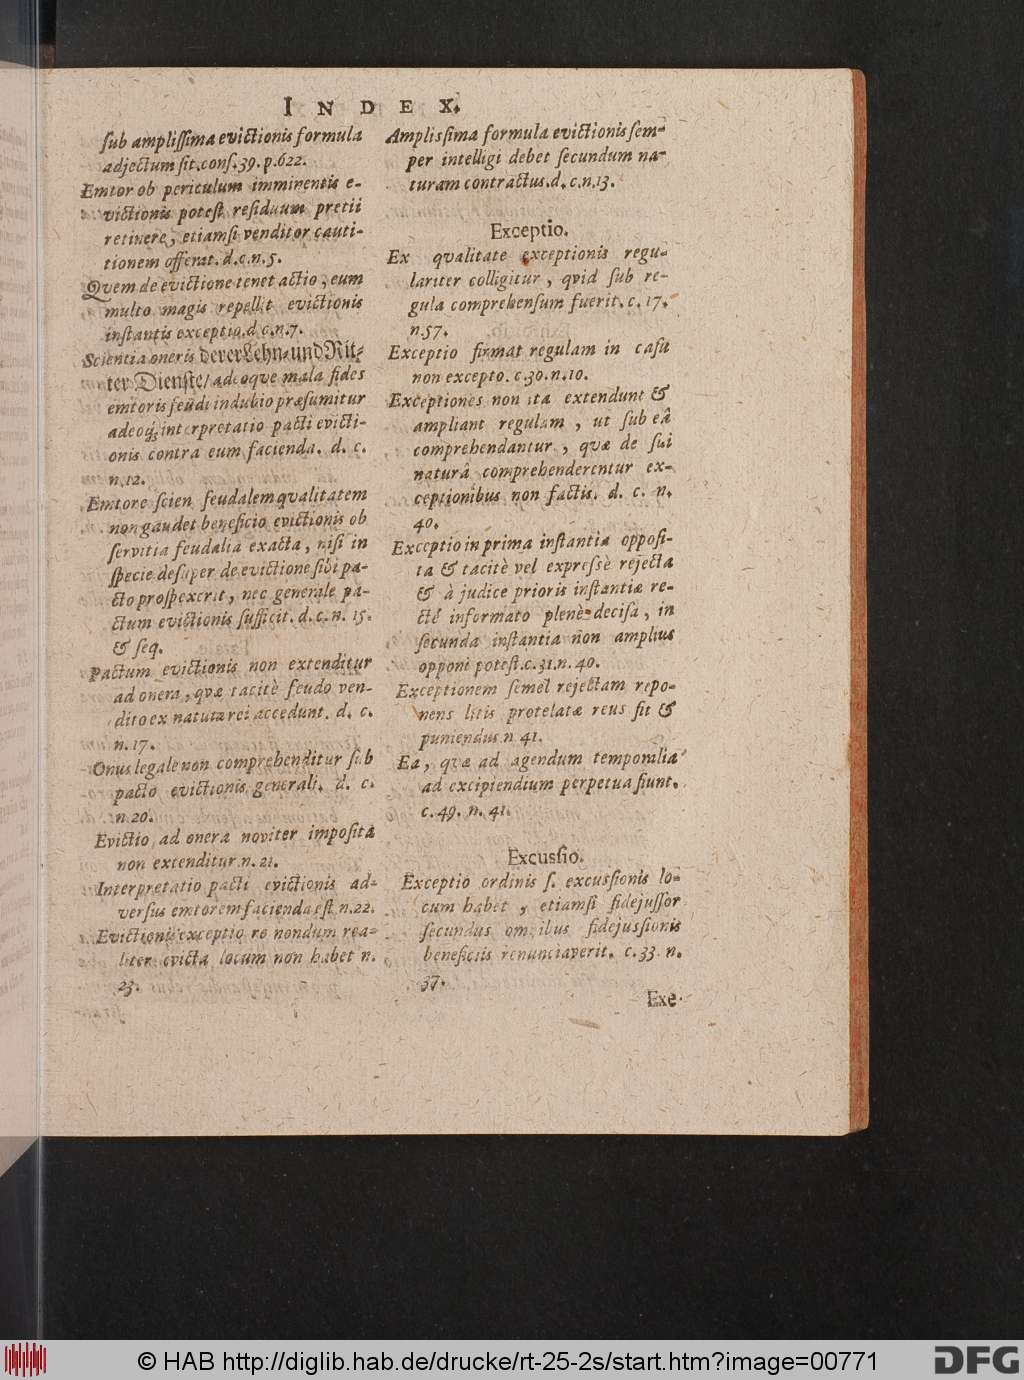 INDEX.
sub amplissima evictionis formula
adjectum sit. cons. 39. p. 622.
Emtor ob periculum imminentis e-
victionis potest residuum pretii
retinere, etiamsi venditor cauti-
tionem offerat. d. c. n. 5.
Qvem de evictione tenet actio, eum
multo magis repellit evictionis
instantis exceptio. d. c. n. 7.
Scientia oneris derer Lehn- und Rit-
ter Dienste / adeoque mala fides
emtoris feudi indubio præsumitur
adeoq; interpretatio pacti evicti-
onis contra eum facienda. d. c.
n. 12.
Emtore scien feudalem qvalitatem
non gaudet beneficio evictionis ob
servitia feudalia exacta, nisi in
specie desuper de evictione sibi pa-
cto prospexerit, nec generale pa-
ctum evictionis sufficit. d. c. n. 15.
& seq.
Pactum evictionis non extenditur
ad onera, qvæ tacitè feudo ven-
dito ex natura rei accedunt. d. c.
n. 17.
Onus legale non comprehenditur sub
pacto evictionis generali. d. c.
n. 20.
Evictio ad onera noviter imposita
non extenditur n. 21.
Interpretatio pacti evictionis ad-
versus emtorem facienda est n. 22.
Evictionis exceptio re nondum rea-
liter evicta locum non habet n.
23.
Amplissima formula evictionis sem-
per intelligi debet secundum na-
turam contractus. d. c. n. 13.
Exceptio.
Ex qvalitate exceptionis regu-
lariter colligitur, qvid sub re-
gula comprehensum fuerit. c. 17.
n. 57.
Exceptio firmat regulam in casu
non excepto. c. 30. n. 10.
Exceptiones non ita extendunt &
ampliant regulam, ut sub eâ
comprehendantur, qvæ de sui
naturâ comprehenderentur ex-
ceptionibus non factis. d. c. n.
40.
Exceptio in prima instantia opposi-
ta & tacitè vel expressè rejecta
& à judice prioris instantiæ re-
ctè informato plenè decisa, in
secunda instantia non amplius
opponi potest. c. 31. n. 40.
Exceptionem semel rejectam repo-
nens litis protelatæ reus fit &
puniendus n. 41.
Ea, qvæ ad agendum temporalia
ad excipiendium perpetua fiunt.
c. 49. n. 41.
Excussio.
Exceptio ordinis s. excussionis lo-
cum habet, etiamsi fidejussor
secundus omnibus fidejussionis
beneficiis renunciaverit. c. 33. n.
37.
Exe-
© HAB http://diglib.hab.de/drucke/rt-25-2s/start.htm?image=00771
DFG